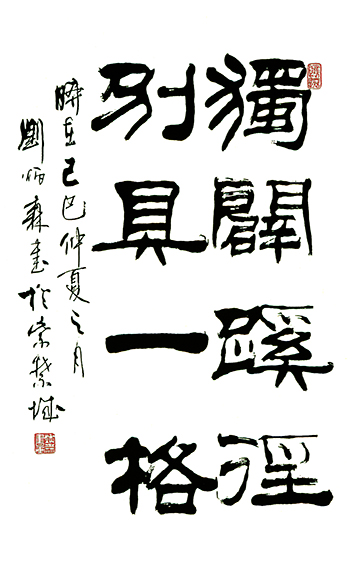 獨闢蹊徑
别具一格
時在己巳仲夏之月
劉炳森書於紫禁城